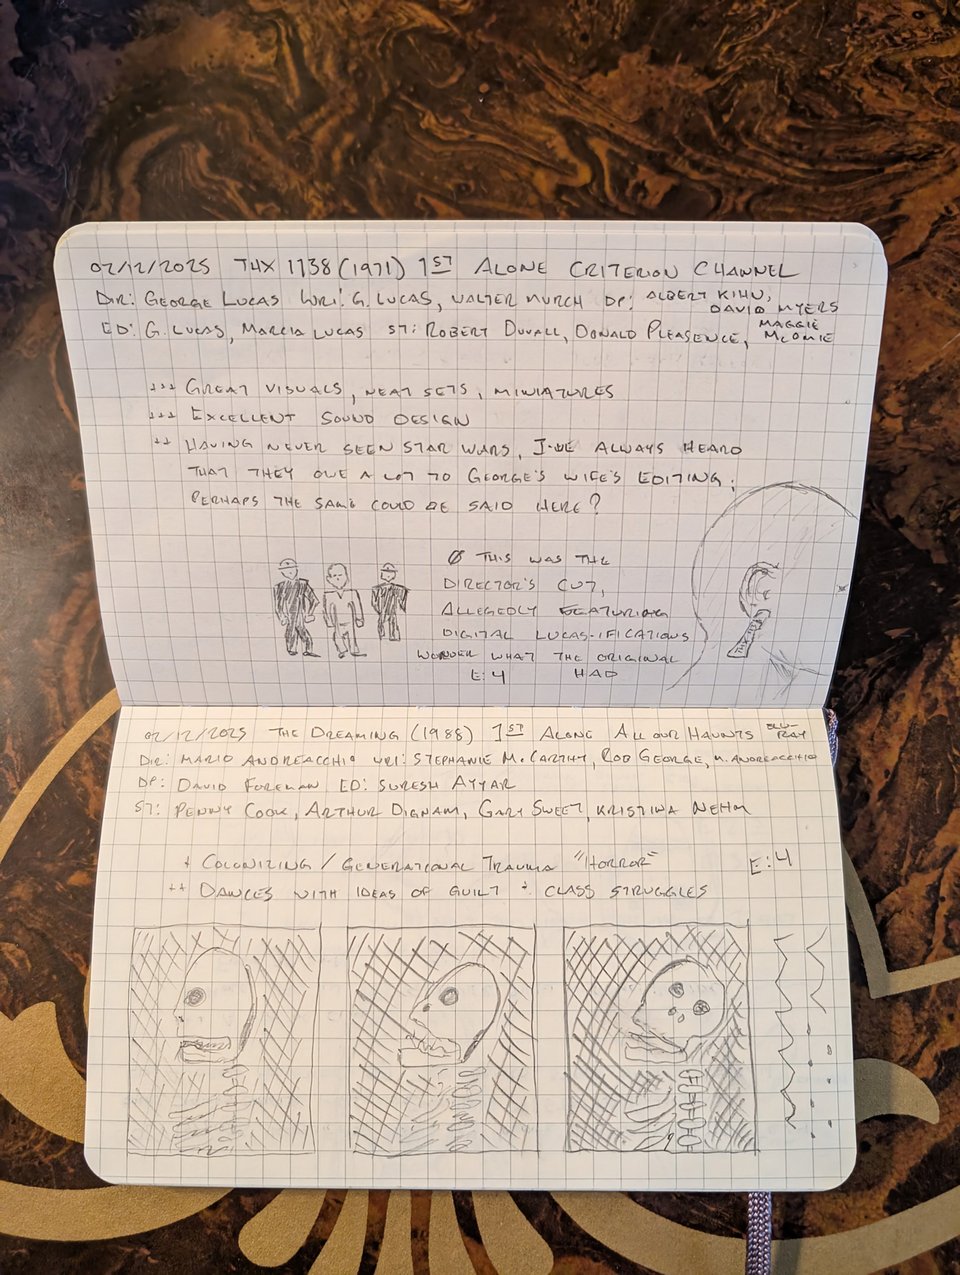 02/12/2025 THX 1138 (1971) 1ST ALONE CRITERION CHANNEL
DIR: GEORGE LUCAS WRI: G. LUCAS, WALTER MURCH DP: ALBERT KIHN,
DAVID MYERS
ED: G. LUCAS, MARCIA LUCAS ST: ROBERT DUVALL, DONALD PLEASENCE, MAGGIE
MCOMIE
+++ GREAT VISUALS, NEAT SETS, MINIATURES
+++ EXCELLENT SOUND DESIGN
++ HAVING NEVER SEEN STAR WARS, I'VE ALWAYS HEARD
THAT THEY OWE A LOT TO GEORGE'S WIFE'S EDITING;
PERHAPS THE SAME COULD BE SAID HERE?
Ø THIS WAS THE
DIRECTOR'S CUT,
ALLEGEDLY FEATURING
DIGITAL LUCAS-IFICATIONS
WONDER WHAT THE ORIGINAL
E:4 HAD
02/12/2025 THE DREAMING (1988) 1ST ALONE ALL OUR HAUNTS BLU-
RAY
DIR: MARIO ANDREACCHIO WRI: STEPHANIE McCARTHY, ROB GEORGE, M. ANDREACCHIO
DP: DAVID FOREMAN ED: SURESH AYYAR
ST: PENNY COOK, ARTHUR DIGNAM, GARY SWEET, KRISTINA NEHM
+ COLONIZING / GENERATIONAL TRAUMA "HORROR" E:4
++ DANCES WITH IDEAS OF GUILT + CLASS STRUGGLES